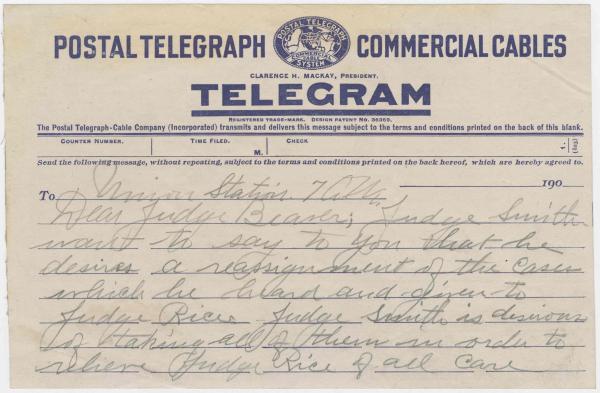 POSTAL TELEGRAPH
POSTAL TELEGRAPH
COMMERCIAL CABLES
SYSTEM
COMMERCIAL CABLES
CLARENCE H. MACKAY, PRESIDENT.
TELEGRAM
REGISTERED TRADE-MARK. DESIGN PATENT No. 36369.
The Postal Telegraph-Cable Company (Incorporated) transmits and delivers this message subject to the terms and conditions printed on the back of this blank.
COUNTER NUMBER. TIME FILED. CHECK
M.
Send the following message, without repeating, subject to the terms and conditions printed on the back hereof, which are hereby agreed to.
Union Station
190
To
Dear Judge Beaver; Judge Smith
want to say to you that he
desires a reassignment of the cases
which he heard and given to
Judge Rice. Judge Smith is desirous
of taking all of them in order to
relieve Judge Rice of all care